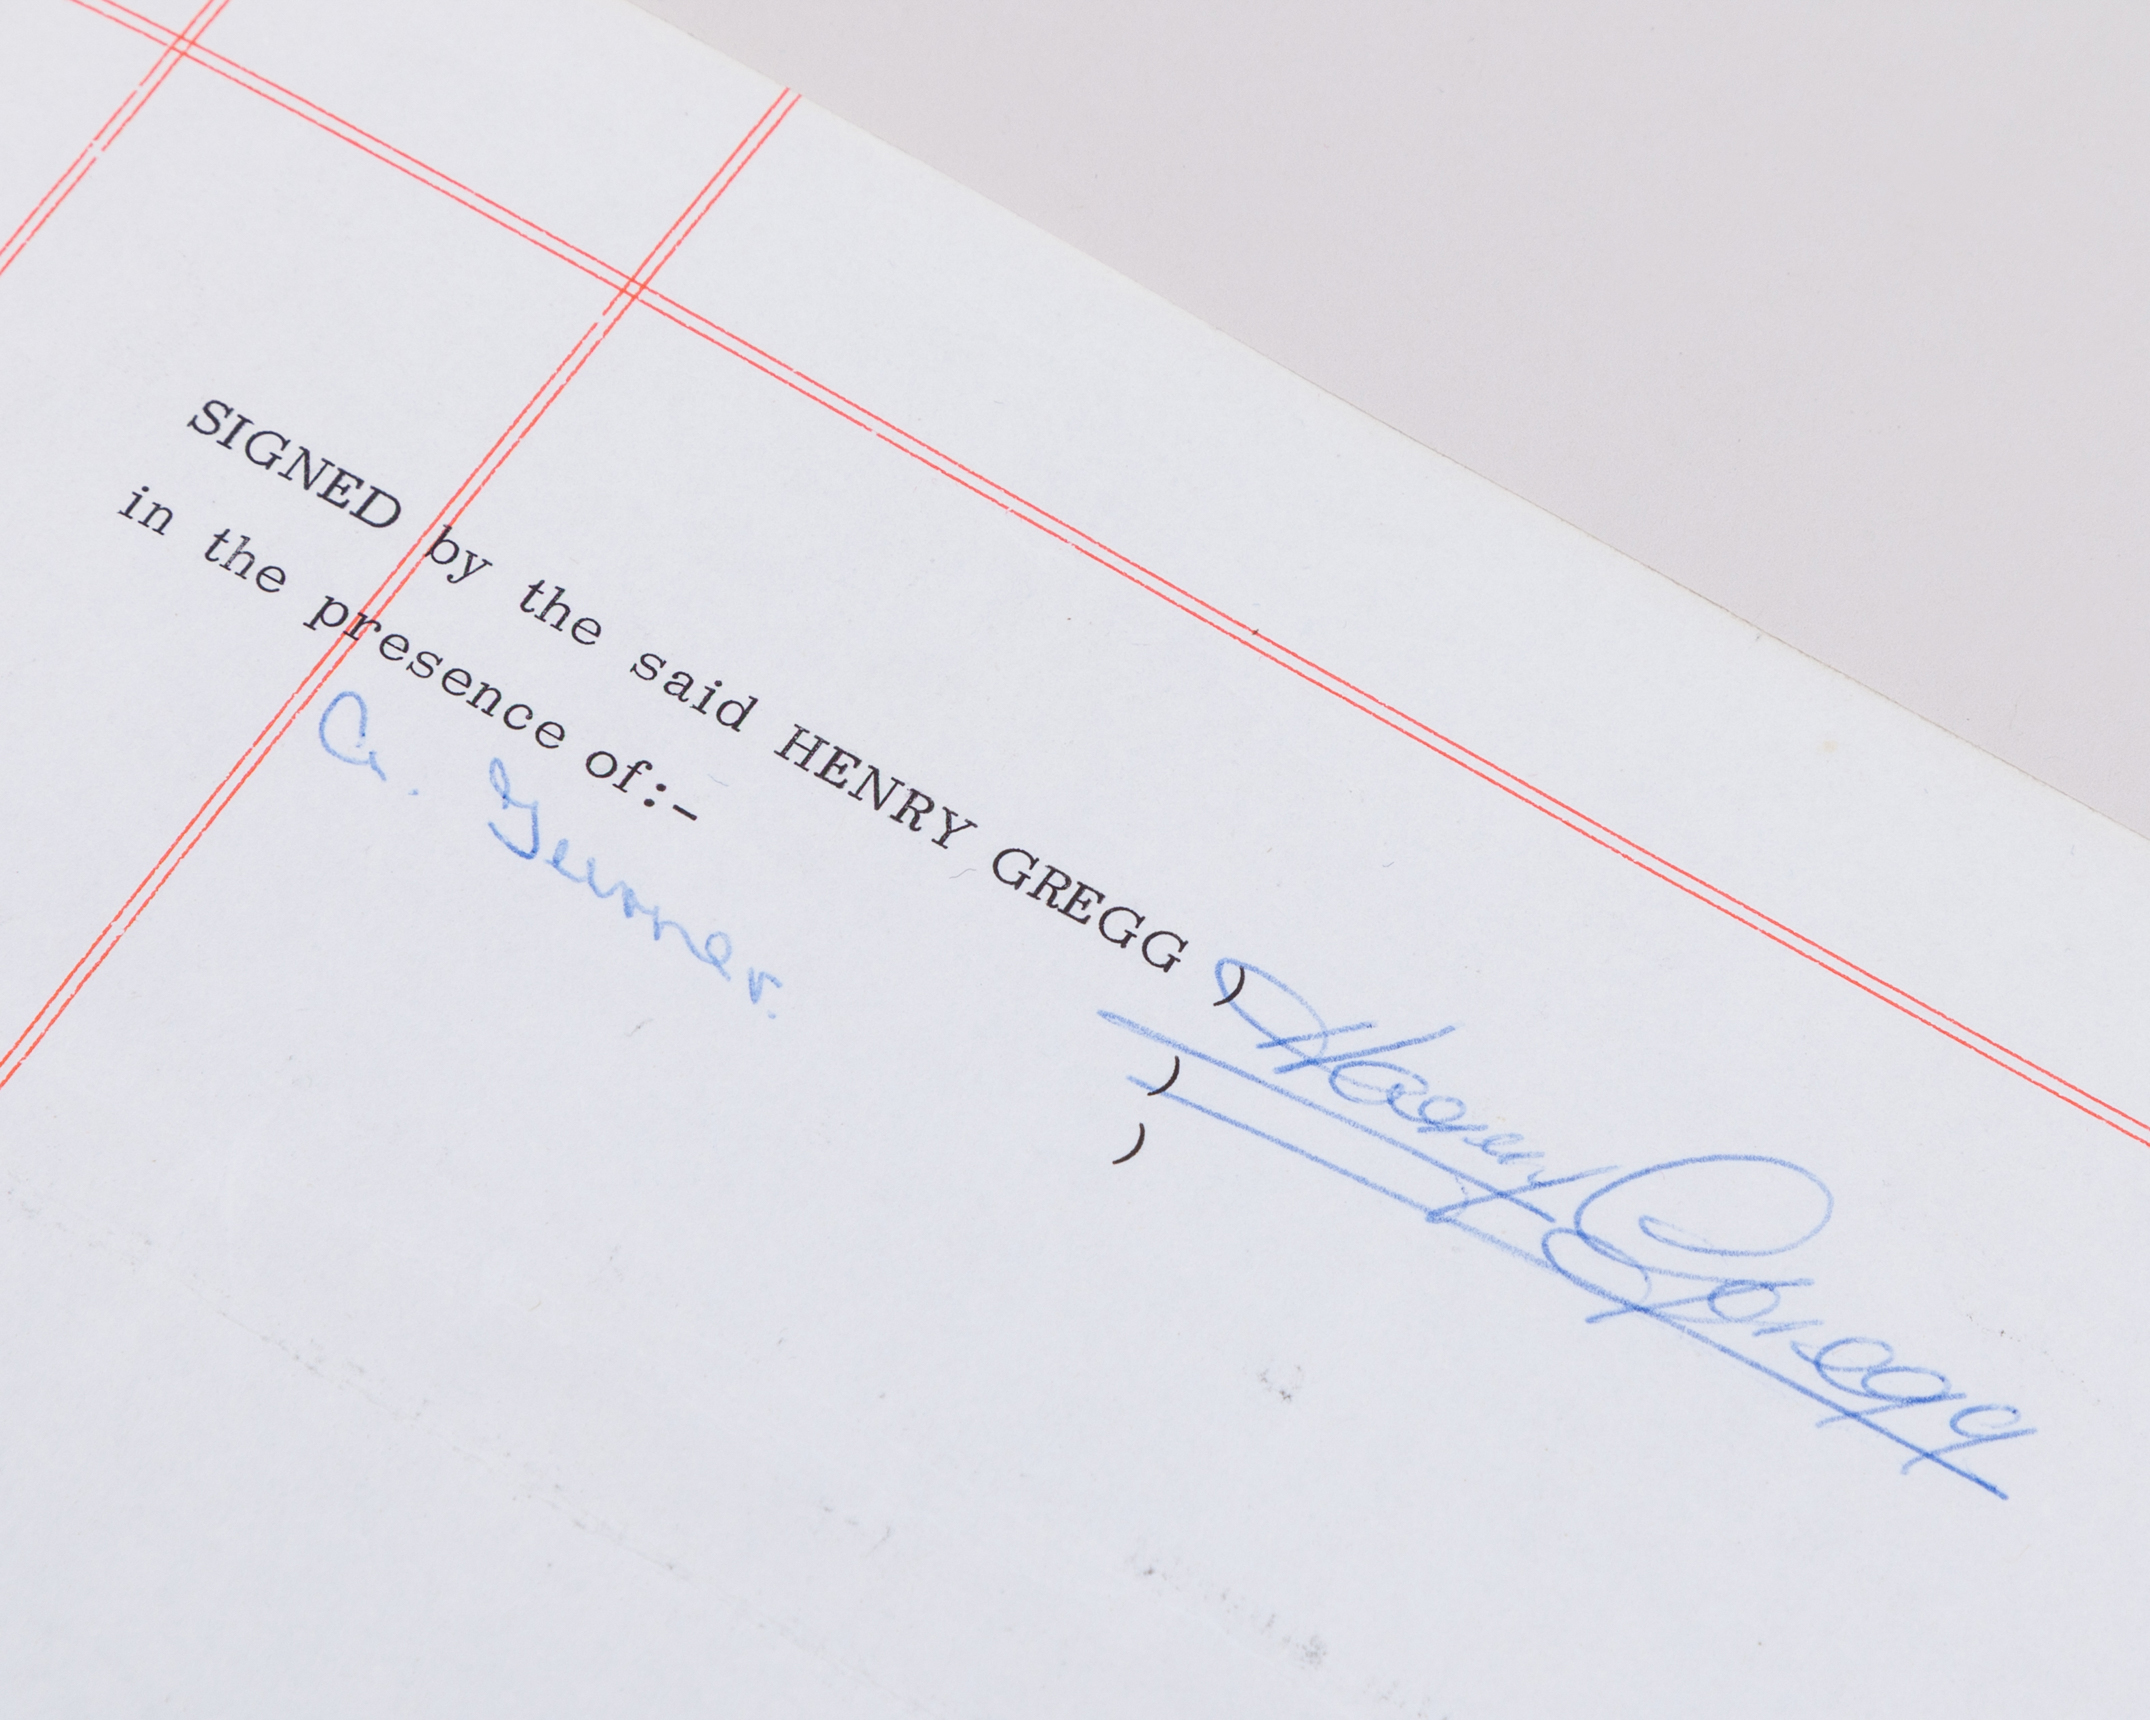 SIGNED by the said HENRY GREGG )
in the presence of:- )
)
Harry Gregg